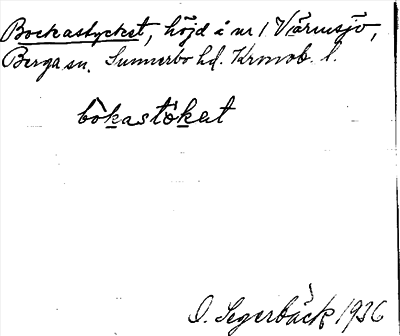 Bockastycket, höjd å nr 1 Värmsjö,
Berga sn. Sunnerbo hd. Krnob. l.
bòkastö̀kat
O. Segerbäck 1936